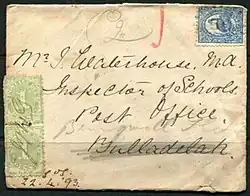 Mr. J. Waterhouse, M.A.
Inspector of Schools
Post Office,
Bulladelah.
22.4.93.